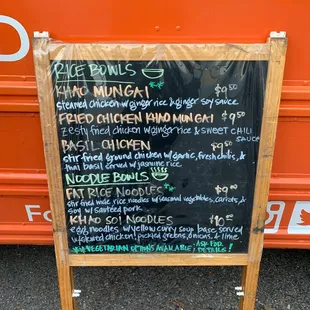 RICE BOWLS
KHAO MUN GAI $9.50
steamed chicken w/ginger rice & ginger soy sauce
FRIED CHICKEN KHAO MUN GAI $9.50
zesty fried chicken w/ginger rice & SWEET CHILI
SAUCE
BASIL CHICKEN $9.50
stir fried ground chicken w/garlic, fresh chilis, &
thai basil served w/jasmine rice.
NOODLE BOWLS
FAT RICE NOODLES $9.00
stir fried wide rice noodles w/seasonal vegetables, carrots, &
soy w/ sauteed pork
KHAO SOI NOODLES $10.00
egg noodles w/yellow curry soup base served
w/stewed chicken, pickled greens, onions, & lime
VEGETARIAN OPTIONS AVAILABLE; ASK FOR
DETAILS!
Fo